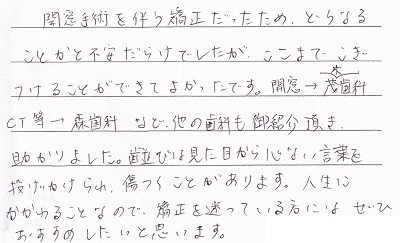 開窓手術を伴う矯正だったため、どうなる
ことかと不安だらけでしたが、ここまでこぎ
つけることができてよかったです。開窓→茂歯科
CT等→森歯科 など、他の歯科も御紹介頂き、
助かりました。歯並びは見た目から心ない言葉を
投げかけられ、傷つくことがあります。人生に
かかわることなので、矯正を迷っている方には ぜひ
おすすめしたいと思います。